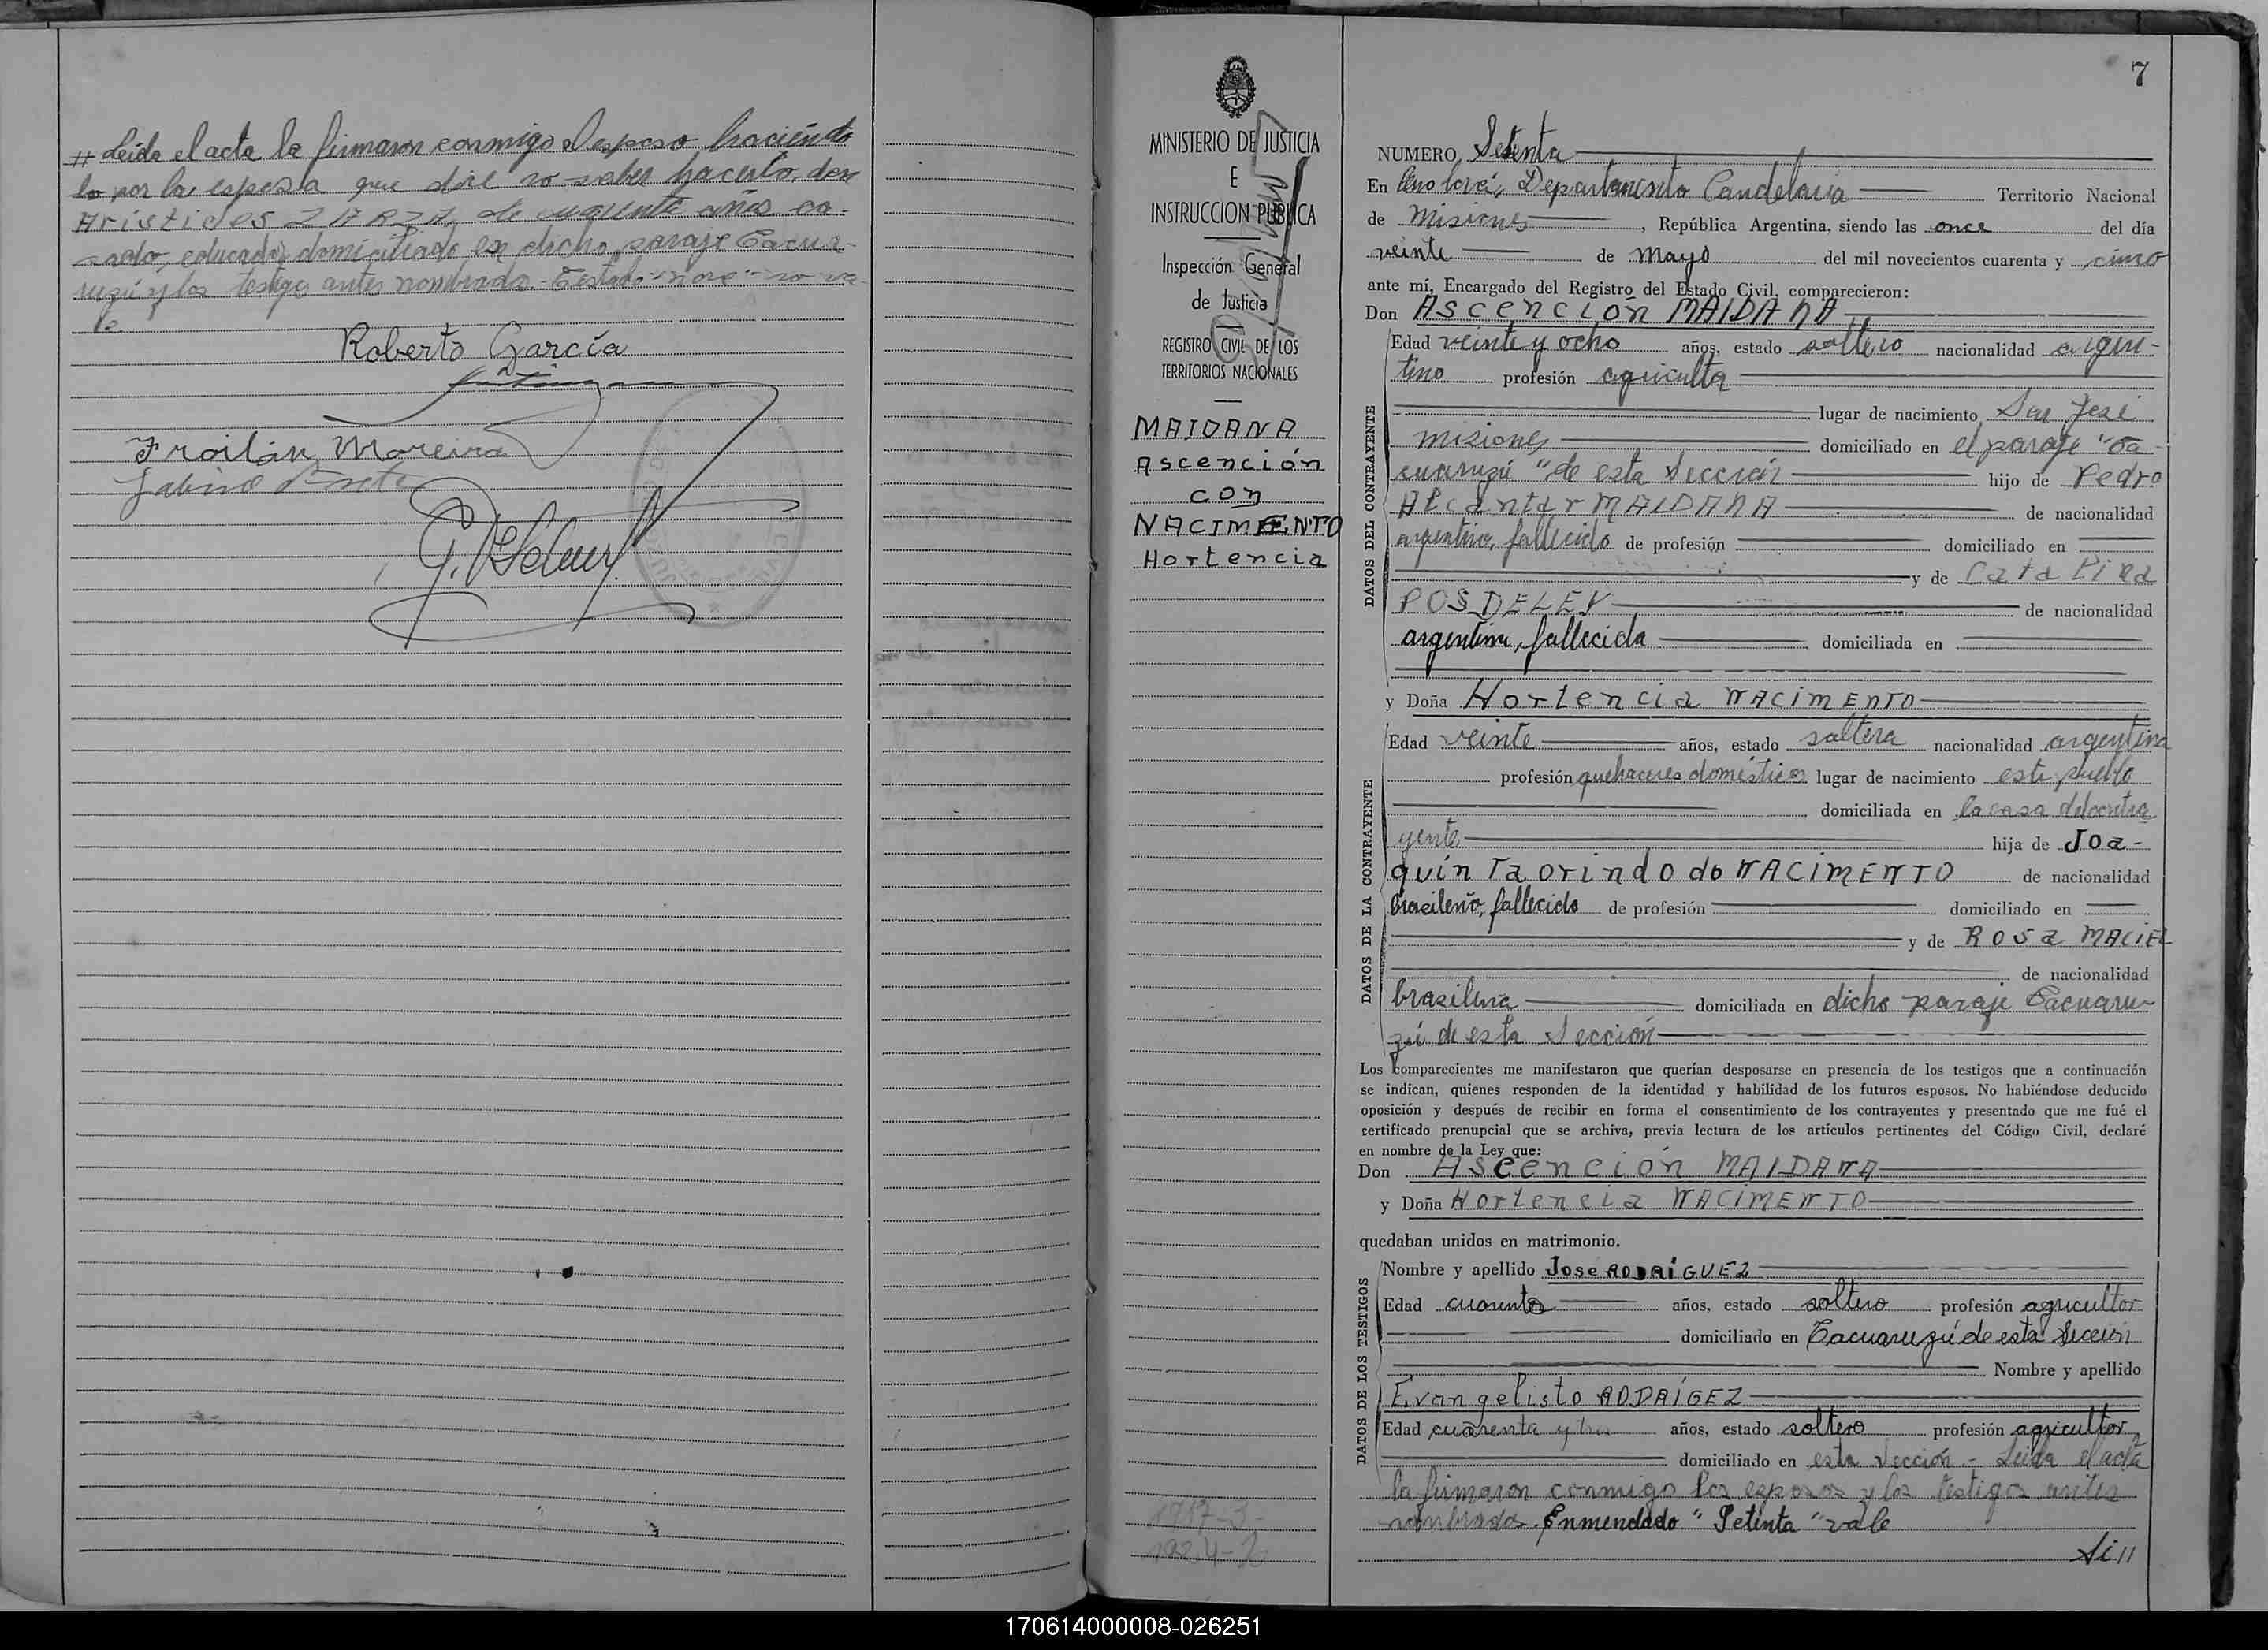 // Leida el acta la firmaron conmigo el esposo haciéndo
lo por la esposa que dice no saber hacerlo, don
Arístides ZARZA, de cuarenta años ca-
sado, educado, domiciliado en dicho paraje Tacua-
ruzú y los testigos antes nombrados.- Testado no va-
le
Roberto García
Froilán Moreira
7
MINISTERIO DE JUSTICIA
E
INSTRUCCION PUBLICA
Inspección General
de Justicia
REGISTRO CIVIL DE LOS
TERRITORIOS NACIONALES
MAIDANA
Ascención
con
NACIMIENTO
Hortencia
1917-3-
1924-2
NUMERO Setenta
En Cerro Corá, Departamento Candelaria Territorio Nacional
de Misiones, República Argentina, siendo las once del día
veinte de Mayo del mil novecientos cuarenta y cinco
ante mí, Encargado del Registro del Estado Civil, comparecieron:
Don Ascención MAIDANA
Edad veinte y ocho años, estado soltero nacionalidad argen-
tino profesión agriculta
lugar de nacimiento San José
Misiones domiciliado en el paraje "Ta
cuaruzú" de esta Sección hijo de Pedro
Alcantar MAIDANA de nacionalidad
argentino, fallecido de profesión domiciliado en
y de Catalina
POSDELEY de nacionalidad
argentina, fallecida domiciliada en
y Doña Hortencia NACIMENTO
Edad veinte años, estado soltera nacionalidad argentina
profesión quehaceres domésticos lugar de nacimiento este pueblo
domiciliada en la casa del contra
yente hija de Joa-
quín Taorindo do NACIMENTO de nacionalidad
brasileño, fallecido de profesión domiciliado en
y de Rosa MACIEL
de nacionalidad
brasilera domiciliada en dicho paraje Tacuaru-
zú de esta Sección
Los comparecientes me manifestaron que querían desposarse en presencia de los testigos que a continuación
se indican, quienes responden de la identidad y habilidad de los futuros esposos. No habiéndose deducido
oposición y después de recibir en forma el consentimiento de los contrayentes y presentado que me fué el
certificado prenupcial que se archiva, previa lectura de los artículos pertinentes del Código Civil, declaré
en nombre de la Ley que:
Don Ascención MAIDANA
y Doña Hortencia NACIMENTO
quedaban unidos en matrimonio.
Nombre y apellido José RODRÍGUEZ
Edad cuarenta años, estado soltero profesión agricultor
domiciliado en Tacuaruzú de esta Sección
Nombre y apellido
Evangelisto RODRÍGEZ
Edad cuarenta y tres años, estado soltero profesión agricultor
domiciliado en esta Sección - Leida el acta
la firmaron conmigo los esposos y los testigos antes
nombrados. Enmendado "Setenta" vale
Si//
DATOS DEL CONTRAYENTE
DATOS DE LA CONTRAYENTE
DATOS DE LOS TESTIGOS
170614000008-026251